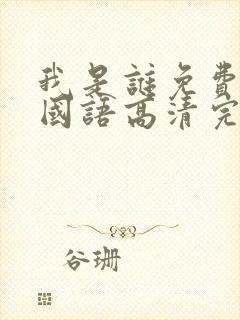 我是誰免費
國語高清完
谷珊